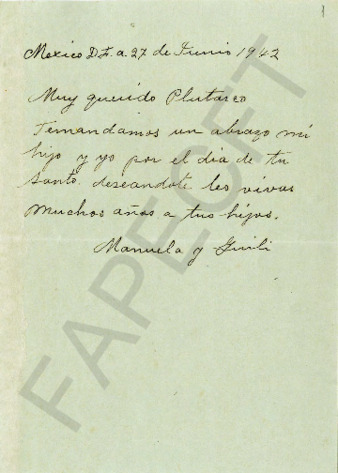 1
Mexico D.F. a 27 de Junio 1942
Muy querido Plutarco
Temandamos un abrazo mi
hijo y yo por el dia de tu
santo deseandote les vivas
muchos años a tus hijos.
Manuela y
FAPECFT